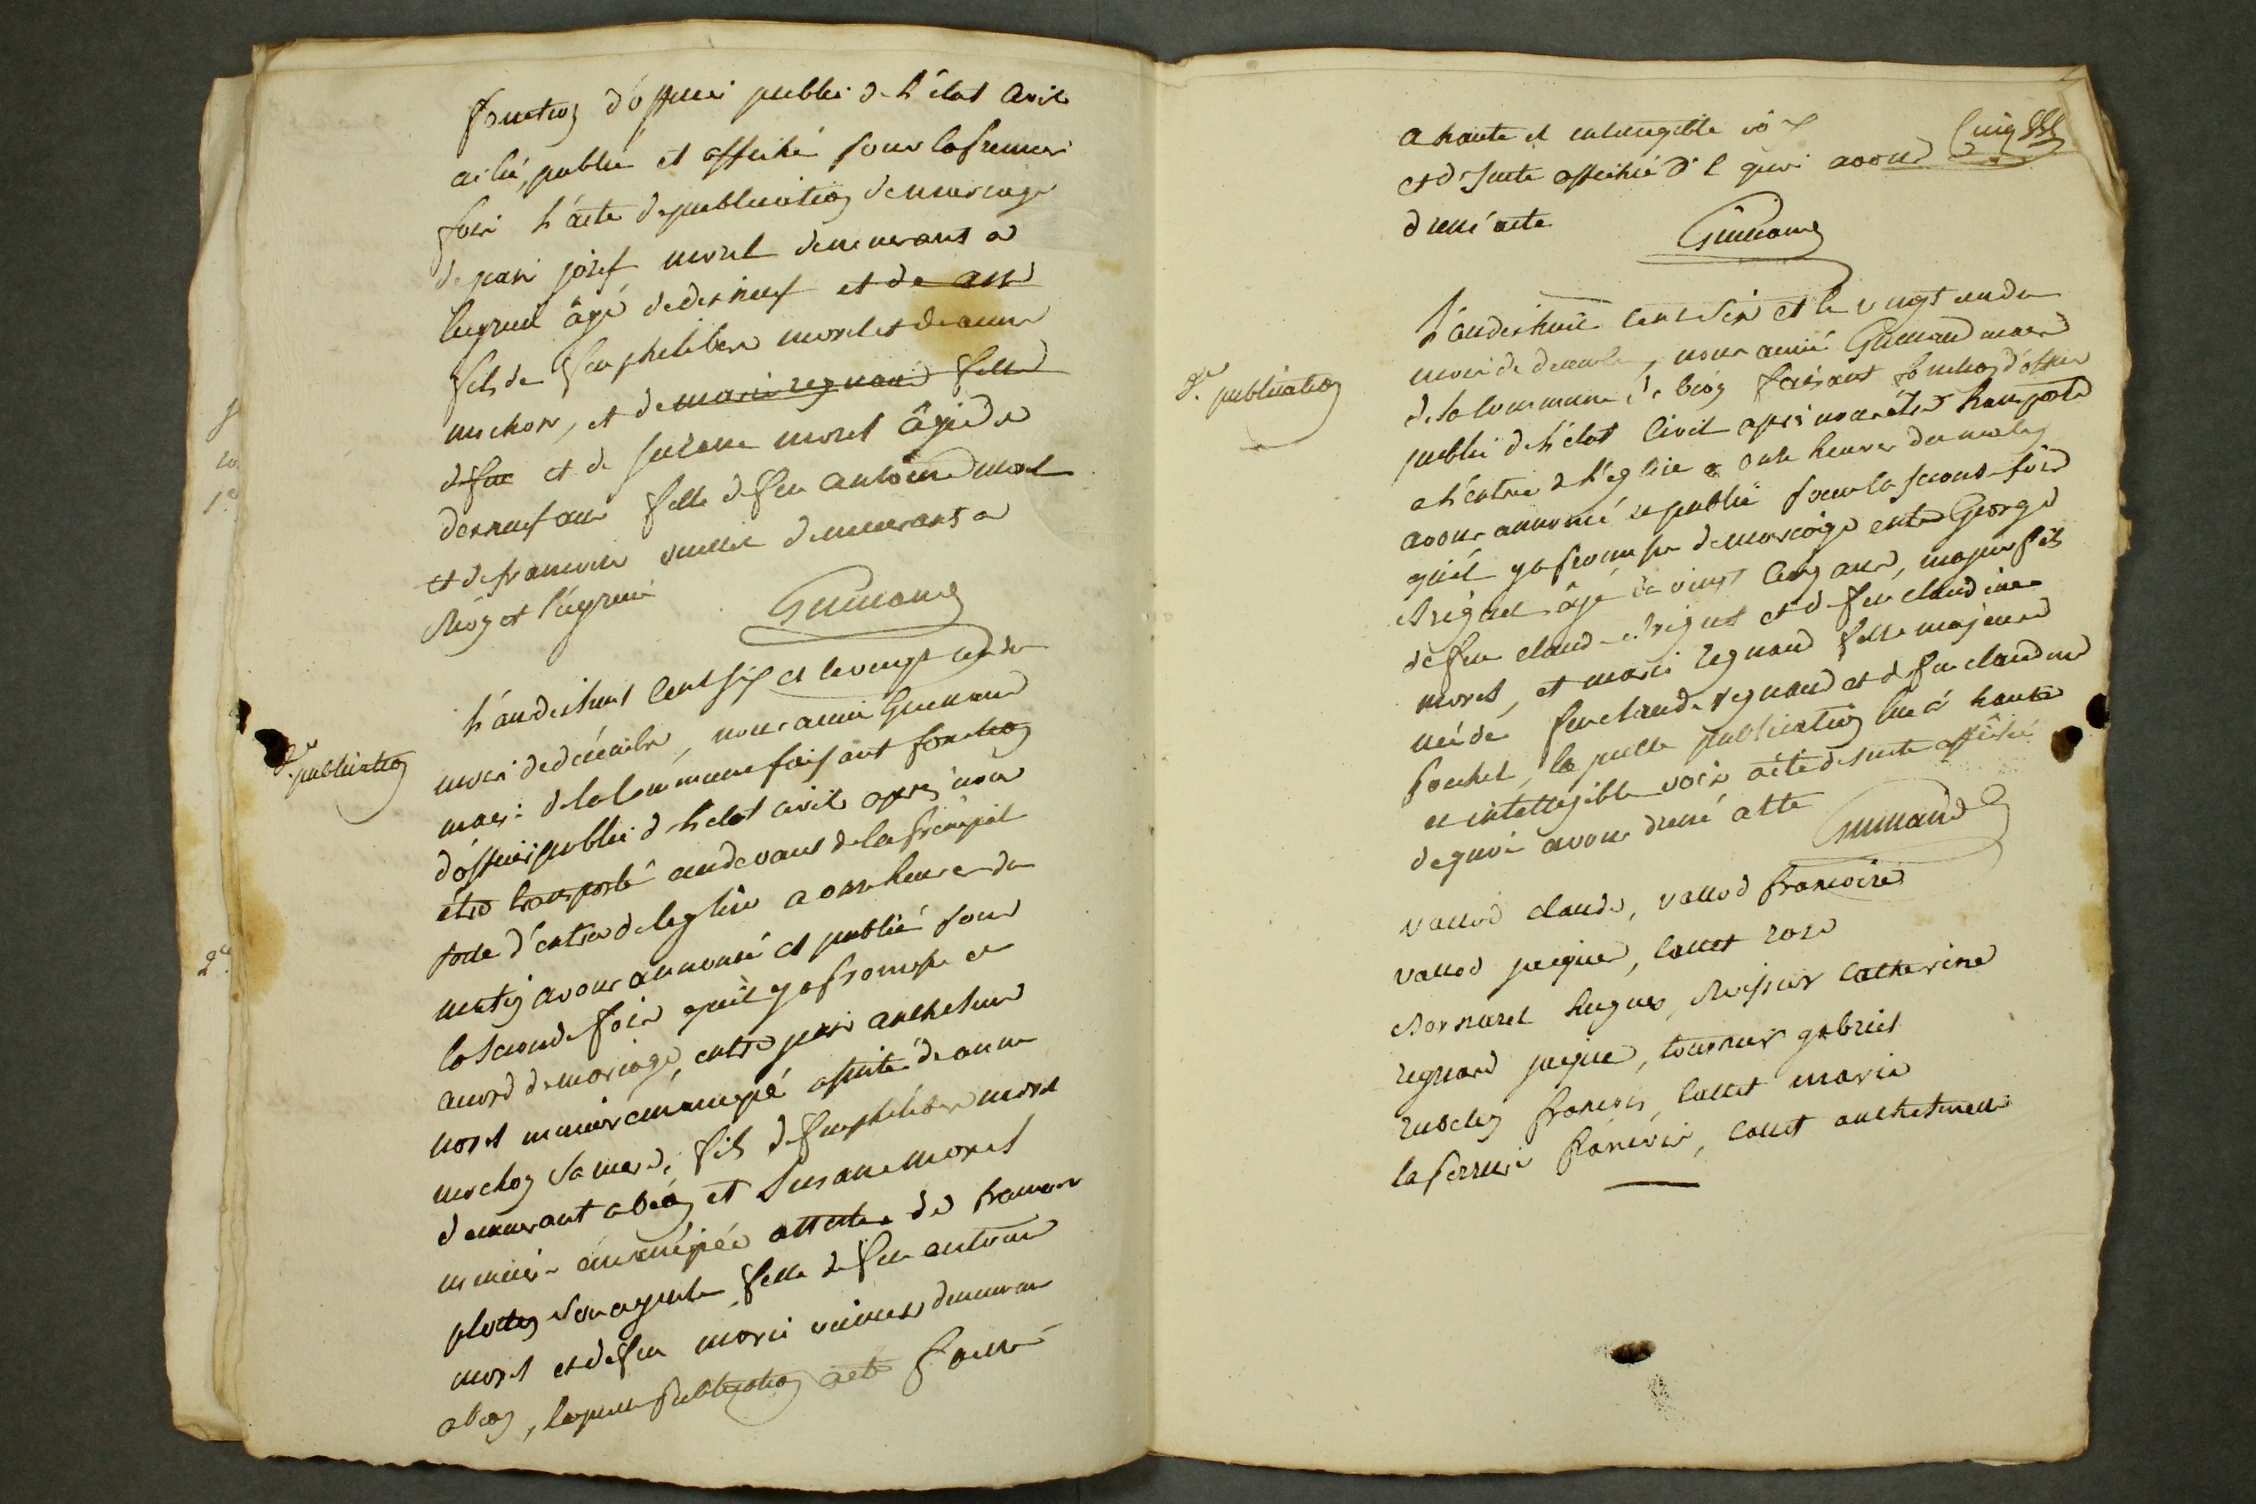 fonction d'officié publié de l'état civil
a été, publié et affiché pour la premier
fois l'acte de publication de mariage
de pari josef morel demeurant a
leyrieu âgé de dixneuf et de ans
fils de feu philiber morel et de anne
michon, et de marie regnaud fille
de feu et de susanne morel âgé de
dixneuf ans fille de feu antoine morel
et de francoise demeurant a
béoz et leyrieu
Guinand
2e publication
l'an dixhuit cent six et le vingt un du
mois de décembre, nous aimé Guinand
maire de la commune faisant fonction
d'officié publié de l'état civil après nous
être transporté audevant de la principal
porte d'entré de leglise a onze heures du
matin avons annoncé et publié pour
la seconde fois qu'il y a promesse et
acord de mariage, entre pari anthelme
morel mineur émancipé assisté de anne
michon sa mere, fils de feu philiber morel
demeurant a béoz et Susane morel
mineure émancipée assistée de francois
son fille de feu antoine
morel et de feu marie demeurant
a béoz, laquelle publication a été faitte
a haute et intelligible voix
et de suite affiché de quoi avons
dréssé acte
Guinand
2e publication
L'an dixhuit cent six et le vingt un du
mois de décembre, nous aimé Guinand maire
de la commune de béoz faisant fonction d'officié
publié de l'état civil après nous être transporté
a l'entrée de l'eglise a onze heures du matin
avons annoncé et publié pour la seconde fois
qu'il y a promesse de mariage entre George
âgé de vingt cinq ans, majeur fils
de feu claude et de feu claudine
morel, et marie regnaud fille majeure
née de feu claude regnaud et de feu claudine
pochet, laquelle publication lue à haute
et intelligible voix a été de suite affiché
de quoi avons dréssé acte
Guinand
vallod claude, vallod francoise
vallod jacque, callet roze
hugues, catherine
regnaud jacque, tournier gabriel
francois, callet marie
la perriere francois, callet anthelmette